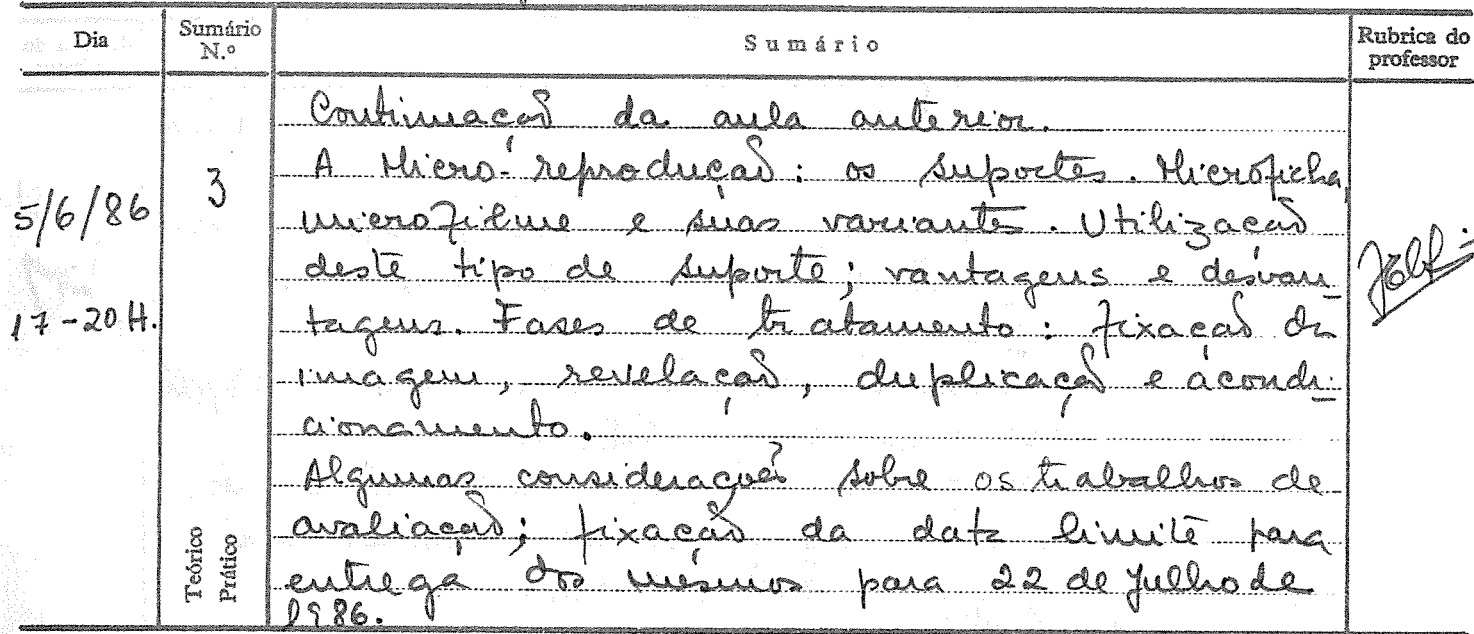 Dia
Sumário
N.º
Sumário
Rubrica do
professor
5/6/86
17-20 H.
3
Teórico
Prático
Continuação da aula anterior.
A Micro-reprodução: os suportes. Microficha,
microfilme e suas variantes. Utilização
deste tipo de suporte; vantagens e desvan
tagens. Fases de tratamento: fixação da
imagem, revelação, duplicação e acondi-
cionamento.
Algumas considerações sobre os trabalhos de
avaliação; fixação da data limite para
entrega dos mesmos para 22 de Julho de
1986.